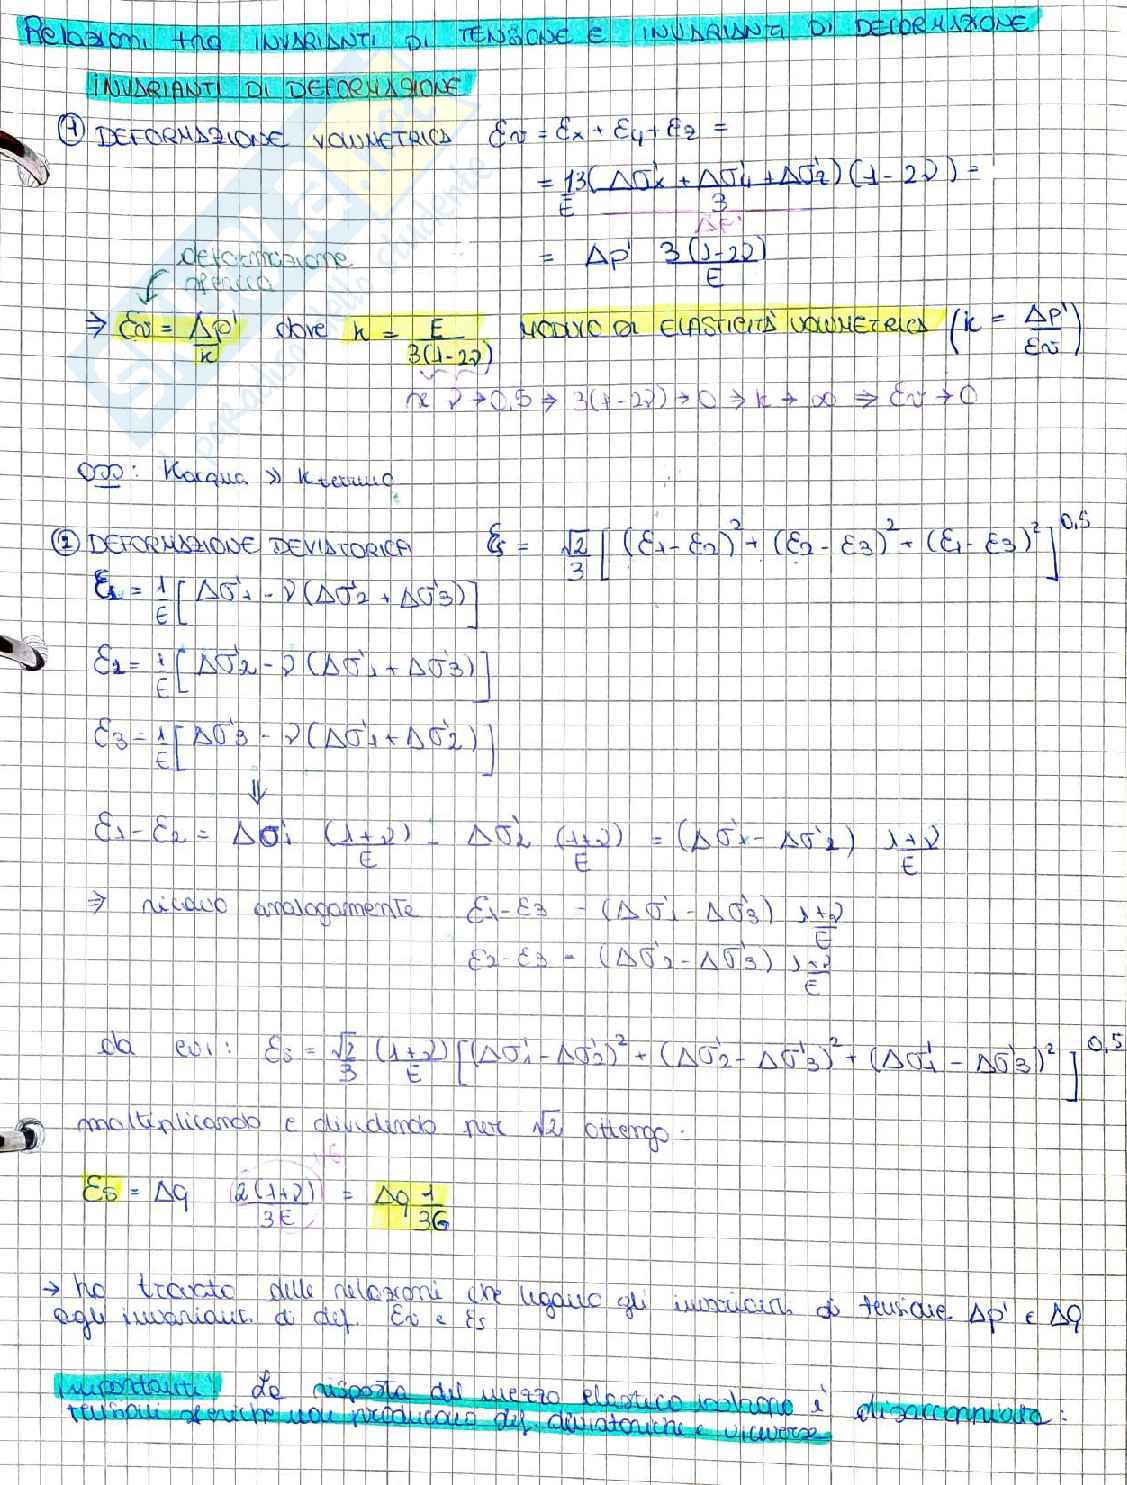 Relazioni tra INVARIANTI DI TENSIONE E INVARIANTI DI DEFORMAZIONE
INVARIANTI DI DEFORMAZIONE
① DEFORMAZIONE VOLUMETRICA εv = εx + εy + εz =
= 1/E 3 (Δσ'x + Δσ'y + Δσ'z)/3 (1-2ν) =
Δp'
= Δp' 3(1-2ν)/E
deformazione
sferica
⇒ εv = Δp'/k dove k = E/3(1-2ν) MODULO DI ELASTICITÀ VOLUMETRICA (k = Δp'/εv)
se ν→0,5 ⇒ 3(1-2ν)→0 ⇒ k→∞ ⇒ εv→0
OSS: Kacqua >> Kterreno
② DEFORMAZIONE DEVIATORICA εs = √2/3 [(ε1-ε2)² + (ε2-ε3)² + (ε1-ε3)²]^0,5
ε1 = 1/E [Δσ'1 - ν(Δσ'2 + Δσ'3)]
ε2 = 1/E [Δσ'2 - ν(Δσ'1 + Δσ'3)]
ε3 = 1/E [Δσ'3 - ν(Δσ'1 + Δσ'2)]
⇓
ε1-ε2 = Δσ'1 (1+ν)/E - Δσ'2 (1+ν)/E = (Δσ'1 - Δσ'2) 1+ν/E
⇒ ricavo analogamente ε1-ε3 = (Δσ'1 - Δσ'3) 1+ν/E
ε2-ε3 = (Δσ'2 - Δσ'3) 1+ν/E
da cui: εs = √2/3 (1+ν)/E [(Δσ'1 - Δσ'2)² + (Δσ'2 - Δσ'3)² + (Δσ'1 - Δσ'3)²]^0,5
moltiplicando e dividendo per √2 ottengo:
εs = Δq 2(1+ν)/3E = Δq 1/3G
→ ho trovato delle relazioni che legano gli invarianti di tensione Δp' e Δq
agli invariant. di def. εv e εs
Importante! La risposta del mezzo elastico isotropo è disaccoppiata:
tensioni sferiche non producono def. deviatoriche e viceversa